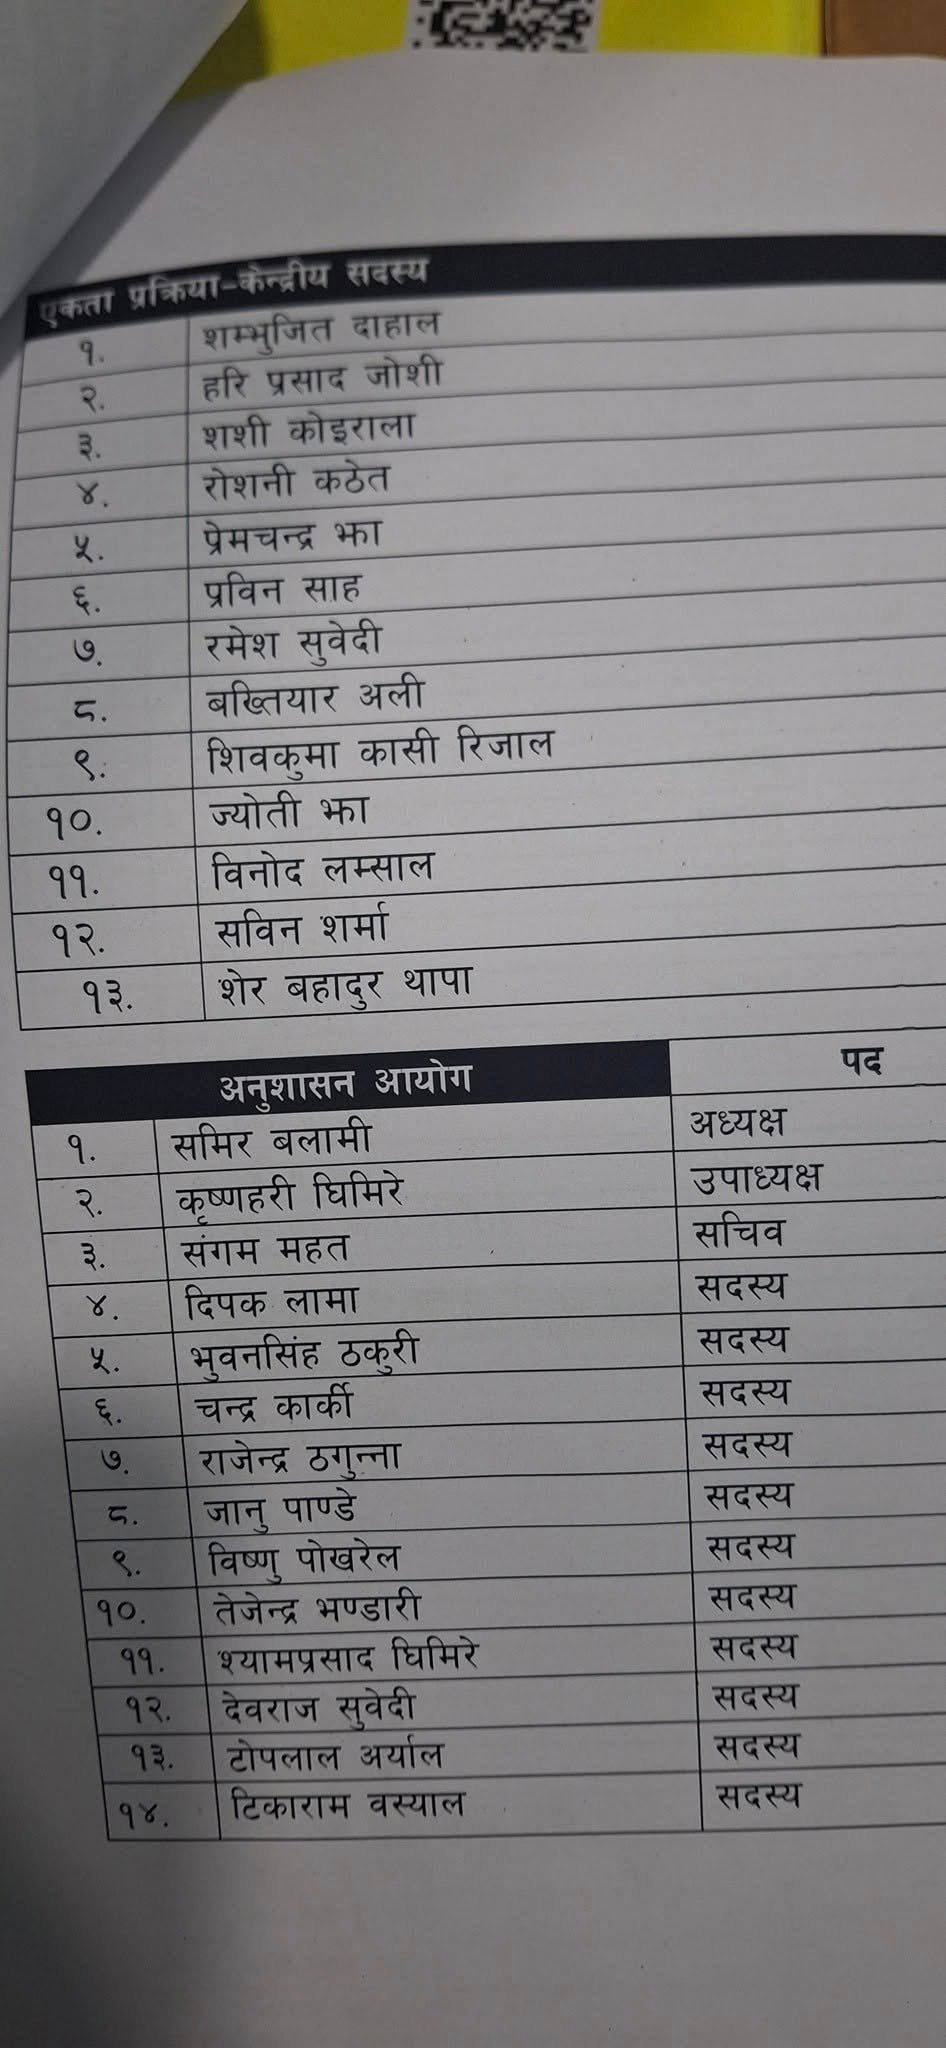 एकता प्रक्रिया-केन्द्रीय सदस्य
१. शम्भुजित दाहाल
२. हरि प्रसाद जोशी
३. शशी कोइराला
४. रोशनी कठेत
५. प्रेमचन्द्र झा
६. प्रविन साह
७. रमेश सुवेदी
८. बख्तियार अली
९. शिवकुमा कासी रिजाल
१०. ज्योती झा
११. विनोद लम्साल
१२. सविन शर्मा
१३. शेर बहादुर थापा
अनुशासन आयोग पद
१. समिर बलामी अध्यक्ष
२. कृष्णहरी घिमिरे उपाध्यक्ष
३. संगम महत सचिव
४. दिपक लामा सदस्य
५. भुवनसिंह ठकुरी सदस्य
६. चन्द्र कार्की सदस्य
७. राजेन्द्र ठगुन्ना सदस्य
८. जानु पाण्डे सदस्य
९. विष्णु पोखरेल सदस्य
१०. तेजेन्द्र भण्डारी सदस्य
११. श्यामप्रसाद घिमिरे सदस्य
१२. देवराज सुवेदी सदस्य
१३. टोपलाल अर्याल सदस्य
१४. टिकाराम वस्याल सदस्य